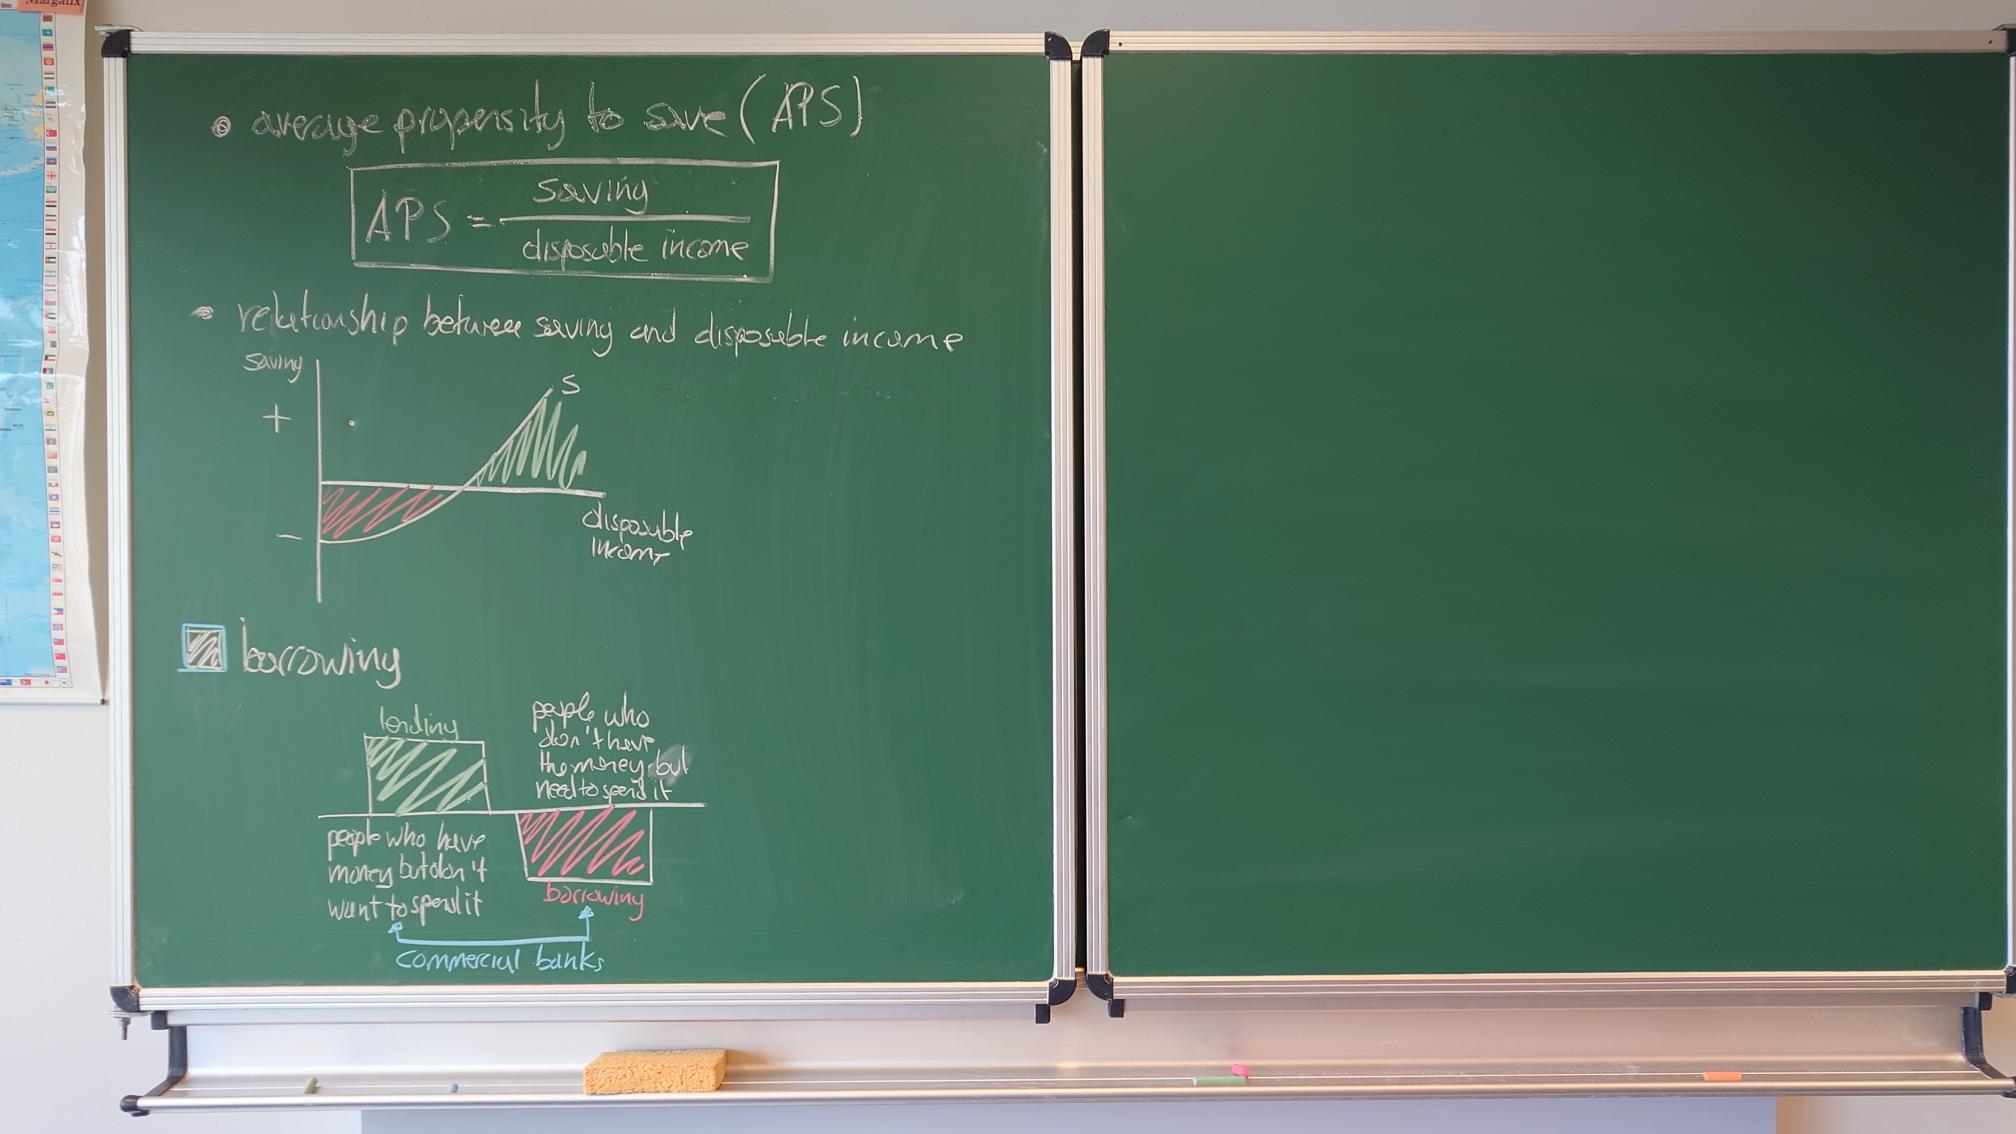 Margaux
• average propensity to save (APS)
APS = saving
disposable income
• relationship between saving and disposable income
saving
+
S
-
disposable
income
borrowing
lending
people who
don't have
the money but
need to spend it
people who have
money but don't
want to spend it
borrowing
commercial banks